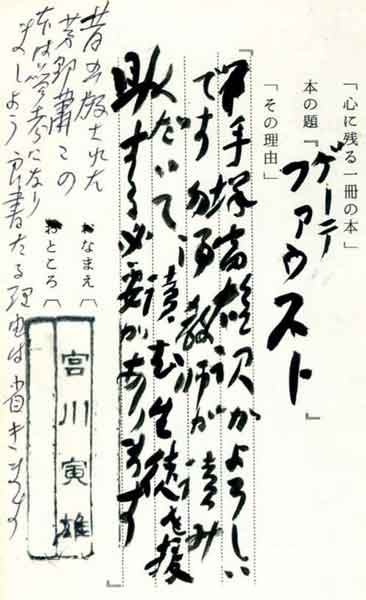 「心に残る一冊の本」
本の題『ゲーテ
ファウスト』
「その理由」
『手塚富雄訳がよろしい
です 勿論教師が読み
くだいて、読む生徒を援
助する必要があります』
おなまえ
おところ
宮川寅雄
昔出版された
茅野蕭々の
本は参考になり
ましよう 良書たる理由は省きます